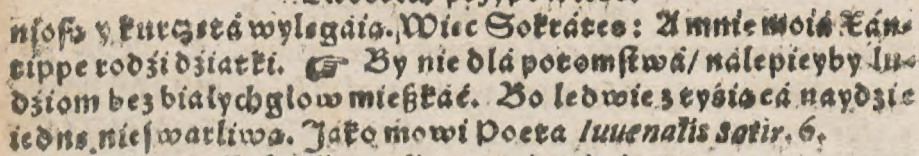 niosą y kurczętá wylegáią. Więc Sokrátes: A mnie moiá Xán-
tippe rodźi dźiatki. ☞ By nie dlá potomstwá/ nalepieyby lu-
dźiom bez białychgłow mieszkáć. Bo ledwie z tyśiącá naydźie
iednę nieswarliwą. Jáko mowi Poeta Iuuenalis Satir. 6.